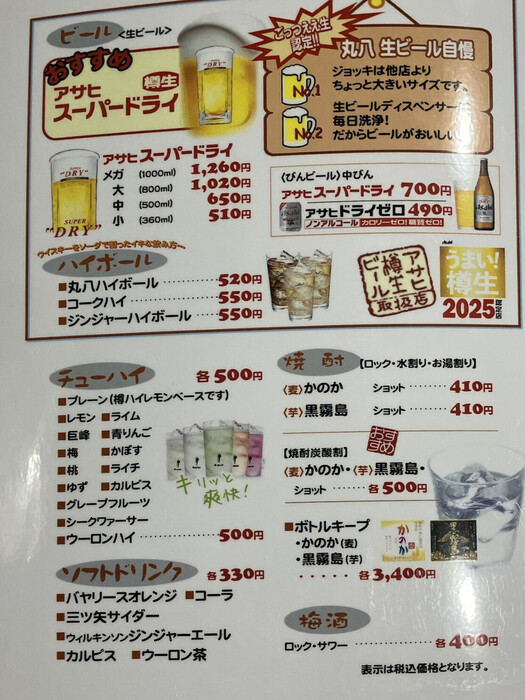 ビール〈生ビール〉
おすすめ
アサヒ 樽生
スーパードライ
ごっつええ生
認定!!
丸八 生ビール自慢
No.1
ジョッキは他店より
ちょっと大きいサイズです。
No.2
生ビールディスペンサー
毎日洗浄!
だからビールがおいしい
アサヒ スーパードライ
メガ (1000ml) 1,260円
大 (800ml) 1,020円
中 (500ml) 650円
小 (360ml) 510円
"DRY"
SUPER
"DRY"
〈びんビール〉中びん
アサヒ スーパードライ 700円
アサヒ ドライゼロ 490円
ノンアルコール カロリーゼロ!糖質ゼロ!
ウイスキーをソーダで割ったイキな飲み方〜
ハイボール
■丸八ハイボール ・・・・・・・・ 520円
■コークハイ ・・・・・・・・・・・・ 550円
■ジンジャーハイボール ・・・・ 550円
アサヒ
樽生
ビール
取扱店
Asahi
うまい!
樽生
2025認定店
チューハイ 各500円
■プレーン(樽ハイレモンベースです)
■レモン ■ライム
■巨峰 ■青りんご
■梅 ■かぼす
■桃 ■ライチ
■ゆず ■カルピス
■グレープフルーツ
■シークヮーサー
■ウーロンハイ ・・・・・・・・ 500円
キリッと
爽快!
ソフトドリンク 各330円
■バヤリースオレンジ ■コーラ
■三ツ矢サイダー
■ウィルキンソンジンジャーエール
■カルピス ■ウーロン茶
焼酎【ロック・水割り・お湯割り】
〈麦〉かのか ショット ・・・・・・ 410円
〈芋〉黒霧島 ショット ・・・・・・ 410円
おすすめ
【焼酎炭酸割】
〈麦〉かのか・〈芋〉黒霧島・
ショット ・・・・・・・ 各500円
■ボトルキープ
・かのか(麦)
・黒霧島(芋)
・・・・・・ 各3,400円
かのか
梅酒
ロック・サワー ・・・・・・・・・ 各400円
表示は税込価格となります。